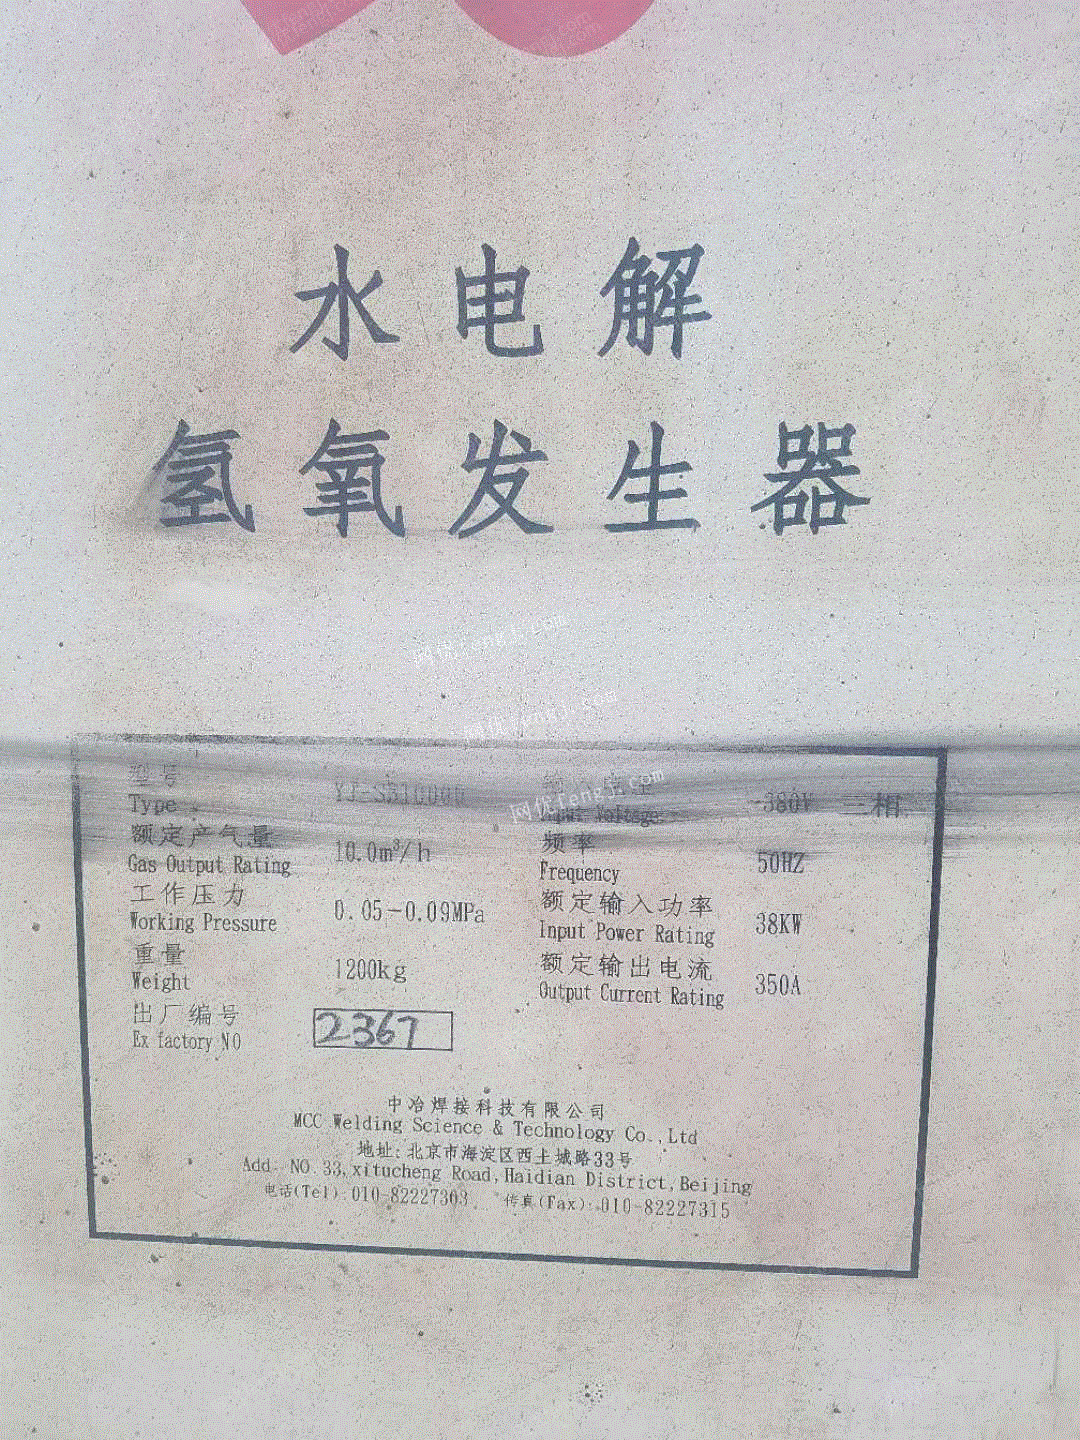 水电解
氢氧发生器
型号
Type
额定产气量 10.0m³/h
Gas Output Rating
工作压力 0.05-0.09MPa
Working Pressure
重量 1200kg
Weight
出厂编号 2367
Ex factory NO
Input Voltage ~380V 三相
频率 50HZ
Frequency
额定输入功率 38KW
Input Power Rating
额定输出电流 350A
Output Current Rating
中冶焊接科技有限公司
MCC Welding Science & Technology Co.,Ltd
地址:北京市海淀区西土城路33号
Add NO.33,xitucheng Road,Haidian District,Beijing
电话(Tel):010-82227303 传真(Fax):010-82227315